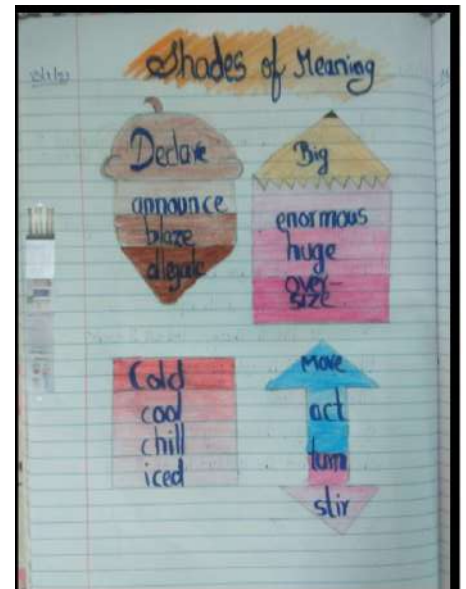 Shades of Meaning
Declare
announce
blaze
allegate
Big
enormous
huge
over-
size
Cold
cool
chill
iced
Move
act
turn
stir